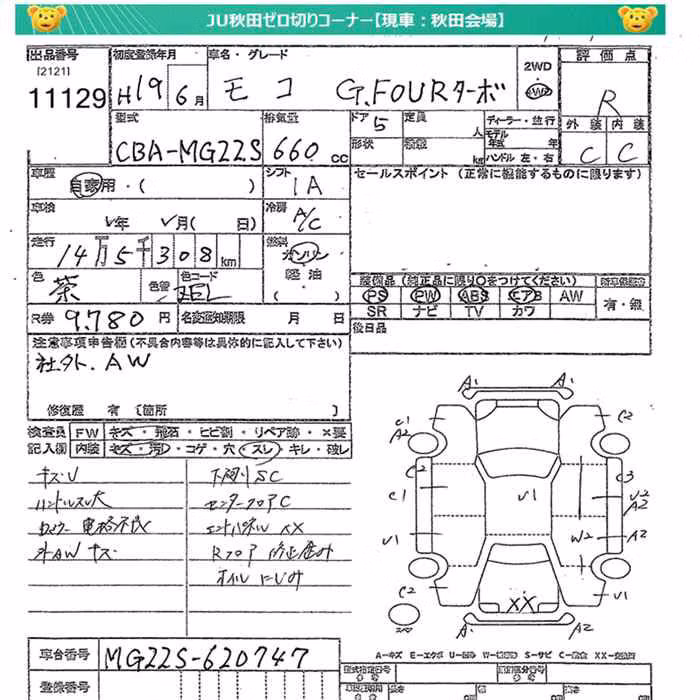 JU秋田ゼロ切りコーナー【現車：秋田会場】
出品番号 初度登録年月 車名・グレード 2WD 評価点
[2121]
11129 H19 6月 モコ G.FOURターボ 4WD R
型式 排気量 ドア 5 定員 人 ディーラー・並行 外装 内装
CBA-MG22S 660 cc 形状 積載 kg モデル年式 年 ハンドル 左・右 C C
車歴 自家用・( ) シフト IA セールスポイント (正常に機能するものに限ります)
車検 年 月( 日) 冷房 A/C
走行 14万5千308km 燃料 ガソリン
軽油
色 茶 色替 色コード ZEL ( )
装備品 (純正品に限り○をつけてください)
PS PW ABS エアB AW 有・無
SR ナビ TV カワ
R券 9.780円 名変通知期限 月 日 後日品
注意事項申告欄 (不具合内容等は具体的に記入して下さい)
社外. AW
修復歴 有 〔箇所 〕
検査員 FW キズ・飛石・ヒビ割・リペア跡・×要
記入欄 内装 キズ・汚れ・コゲ・穴・スレ・キレ・破レ
キズU 下廻りSC
ハンドルスレ大 センターフロアC
電格不良 エンドパネルXX
外AWキズ Rフロア修正歴外
オイルにじみ
A1 A1
C1 C2
A2
C2 C3
C1 U1 U2
A2
U1 W2 A2
C2 XX U1
A1 A2
A-キズ E-エクボ U-凹み W-補修跡 S-サビ C-腐食 XX-交換済
車台番号 MG22S-620747
登録番号